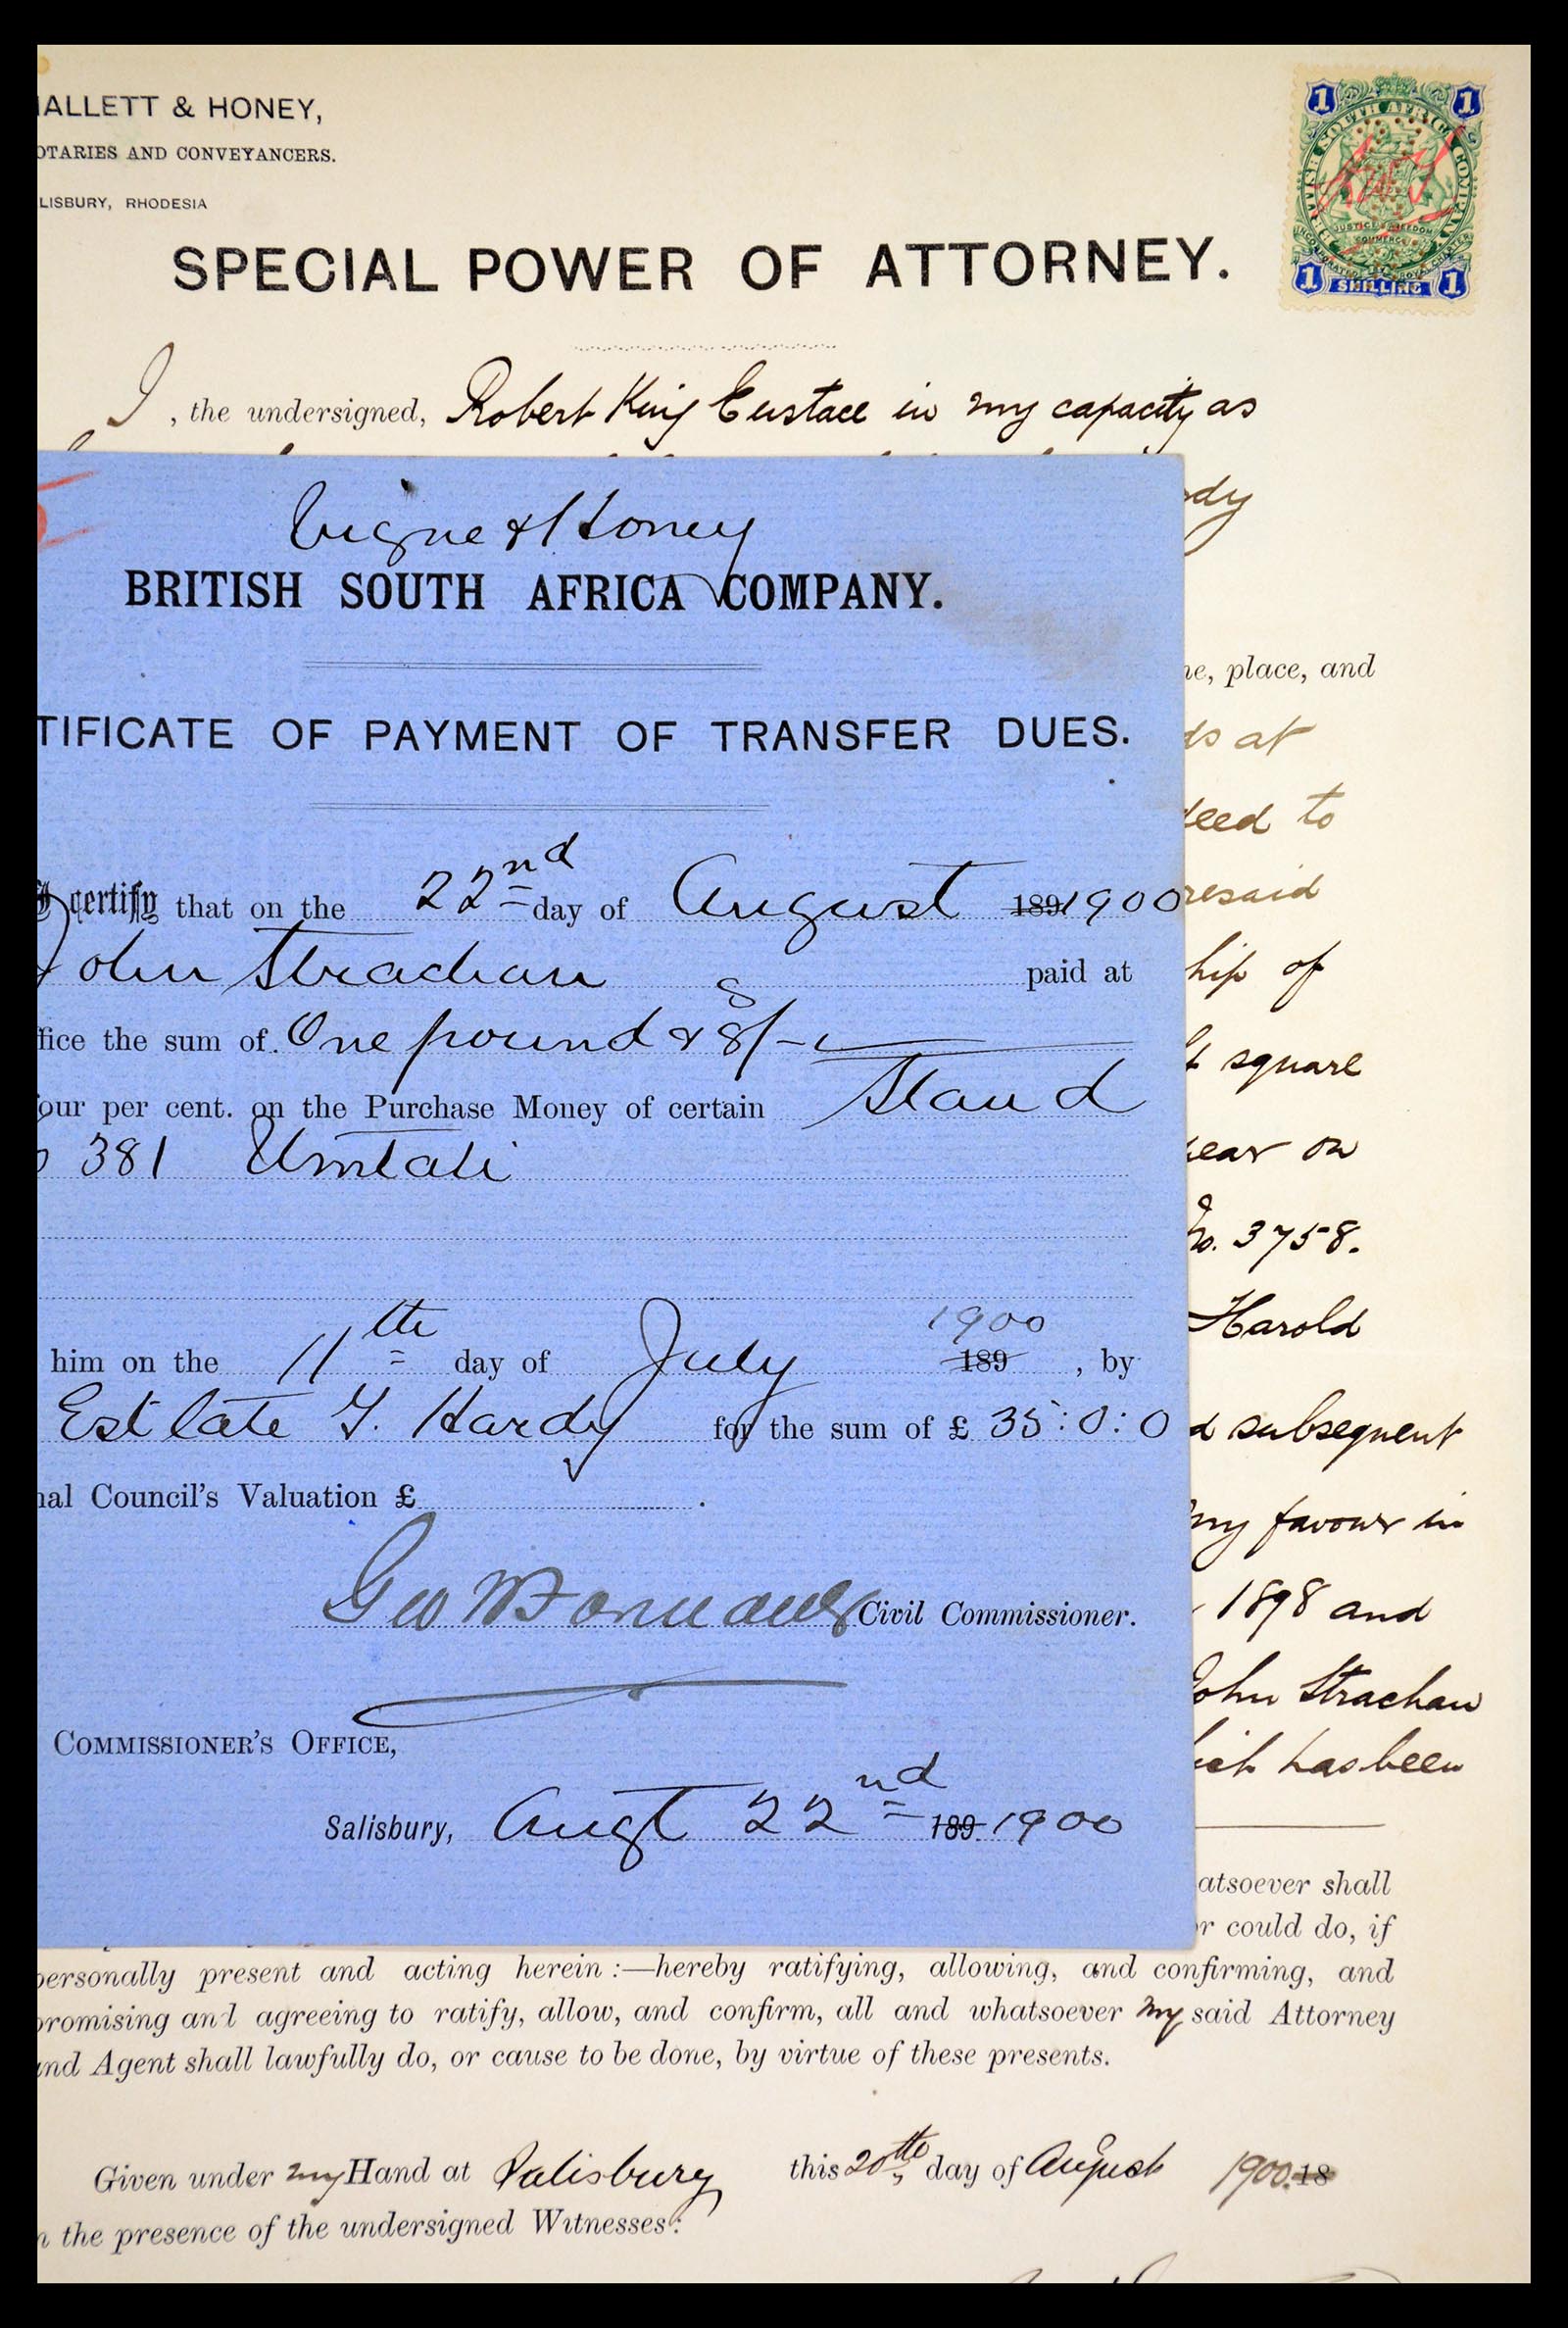 ALLETT & HONEY,
OTARIES AND CONVEYANCERS.
LISBURY, RHODESIA
SPECIAL POWER OF ATTORNEY.
1 1
BRITISH SOUTH AFRICA COMPANY
JUSTICE FREEDOM
COMMERCE
1 SHILLING 1
I, the undersigned, Robert King Eustace in my capacity as
dy
Vigne & Honey
BRITISH SOUTH AFRICA COMPANY.
e, place, and
TIFICATE OF PAYMENT OF TRANSFER DUES.
ds at
deed to
certify that on the 22nd day of August 189 1900
resaid
John Strachan paid at
hip of
fice the sum of One pound & 8/-
square
our per cent. on the Purchase Money of certain Stand
381 Umtali
ear on
No. 3758.
him on the 11th day of July 189 1900, by
Harold
Est late G. Hardy for the sum of £ 35:0:0
d subsequent
al Council's Valuation £ .
my favour in
Civil Commissioner.
1898 and
John Strachan
COMMISSIONER'S OFFICE,
ich has been
Salisbury, Augt 22nd 189 1900
atsoever shall
r could do, if
personally present and acting herein :—hereby ratifying, allowing, and confirming, and
promising and agreeing to ratify, allow, and confirm, all and whatsoever my said Attorney
and Agent shall lawfully do, or cause to be done, by virtue of these presents.
Given under my Hand at Salisbury this 20th day of August 1900. 18
n the presence of the undersigned Witnesses: